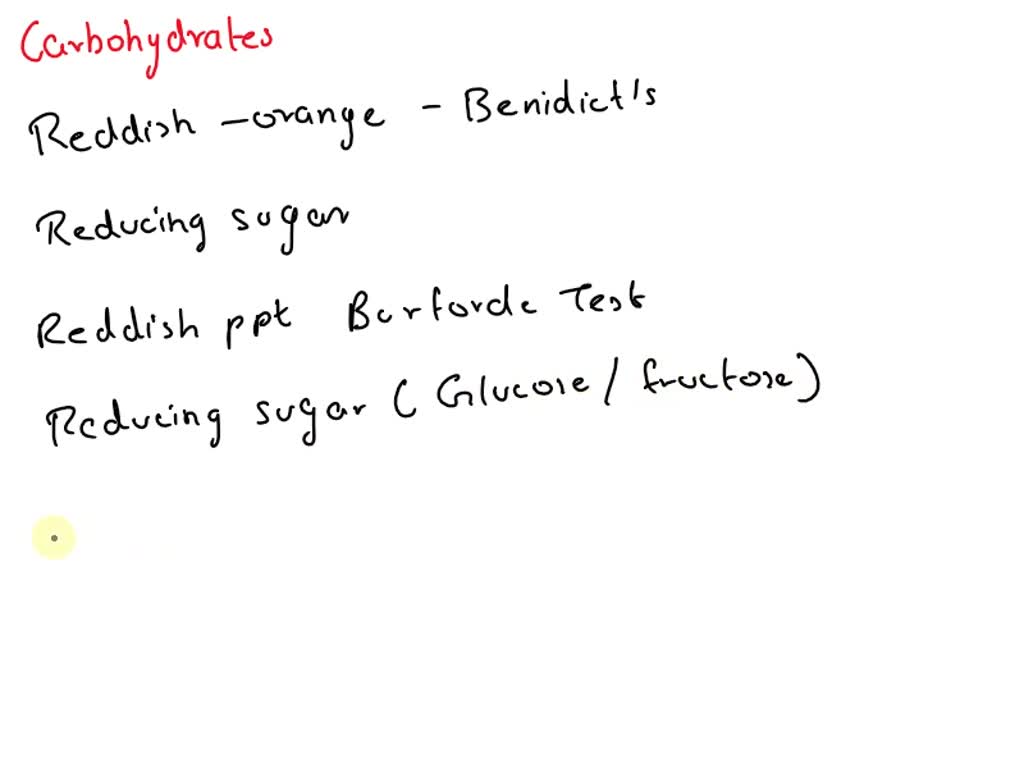 Carbohydrates
Reddish - orange - Benidict's
Reducing sugar
Reddish ppt Barforde Test
Reducing sugar ( Glucose / fructose )